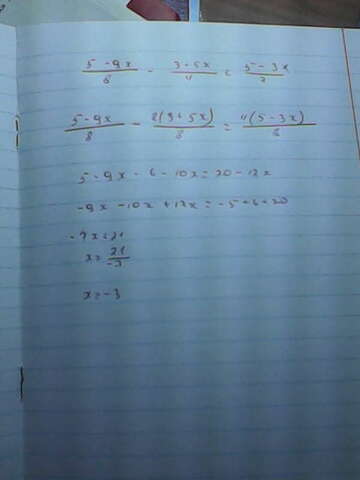 5-9x/8 - 3+5x/4 = 5-3x/2
5-9x/8 - 2(3+5x)/8 = 4(5-3x)/8
5-9x-6-10x=20-12x
-9x-10x+12x=-5+6+20
-7x=21
x=21/-7
x=-3